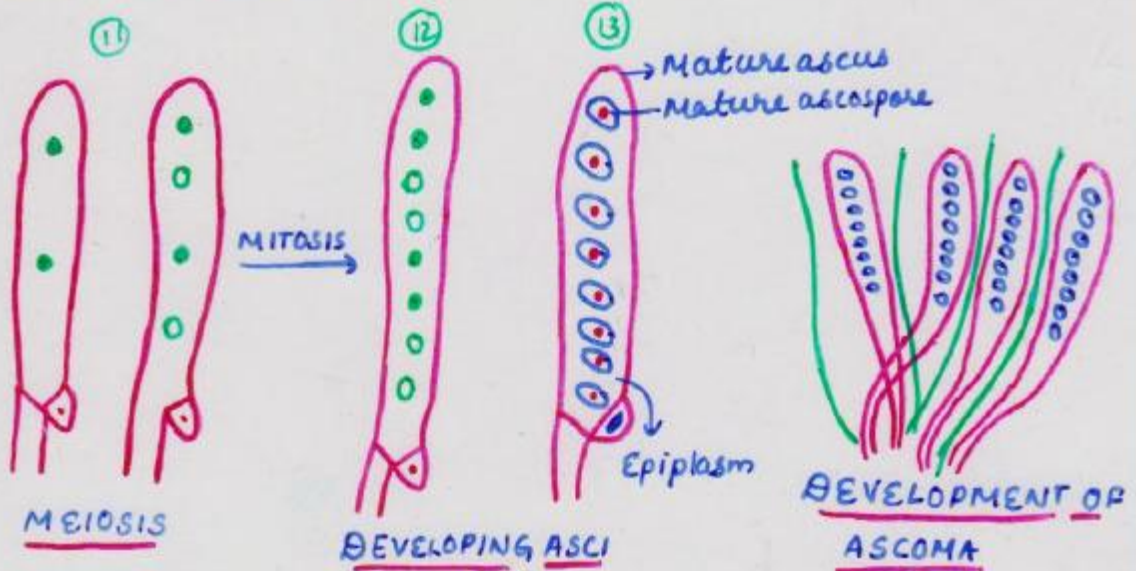 11
12
13
Mature ascus
Mature ascospore
MITOSIS
Epiplasm
MEIOSIS
DEVELOPING ASCI
DEVELOPMENT OF
ASCOMA